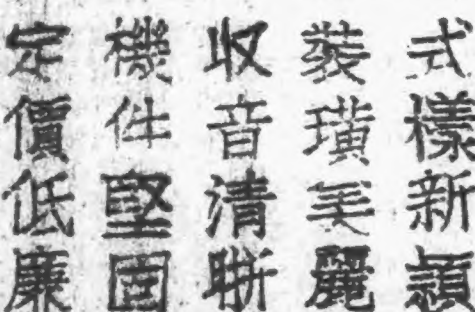 式樣新穎
裝璜美麗
収音清晰
機件堅固
定價低廉